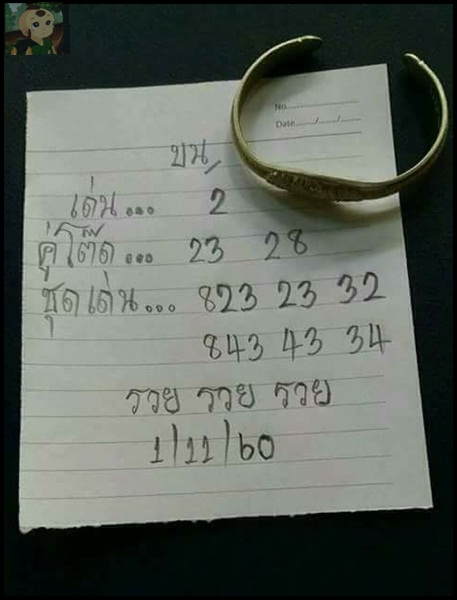 No.
Date....../....../......
บน
เด่น... 2
คู่โต๊ด... 23 28
ชุดเด่น... 823 23 32
843 43 34
รวย รวย รวย
1/11/60